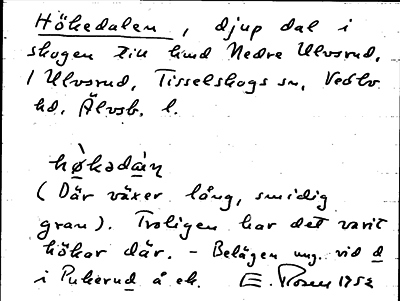 Hökedalen, djup dal i
skogen till hmd Nedre Ulvsrud,
1 Ulvsrud, Tisselskogs sn, Vedbo
hd, Älvsb. l.
hø̀kədàn
(Där växer lång, smidig
gran). Troligen har det varit
hökar där. – Belägen ung. vid d
i Pukerud å ek. E. Rosen 1952